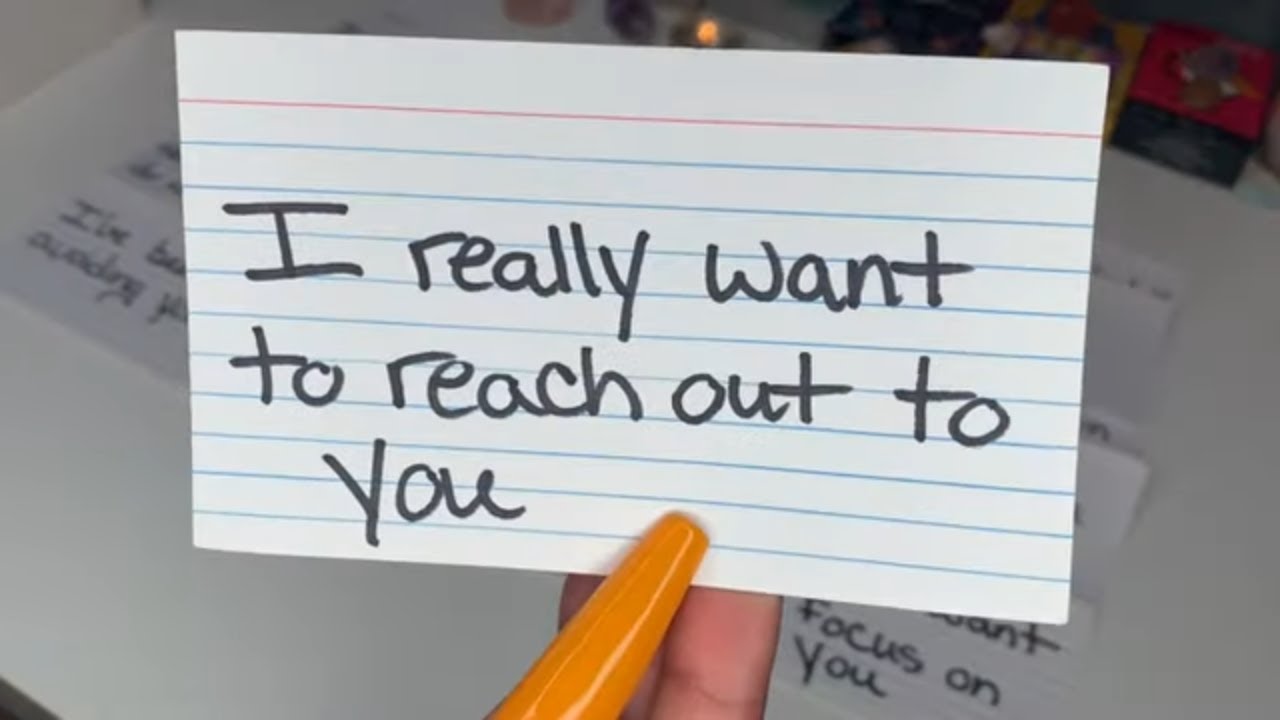 I really want
to reach out to
you
I've
avoiding
want
focus on
you